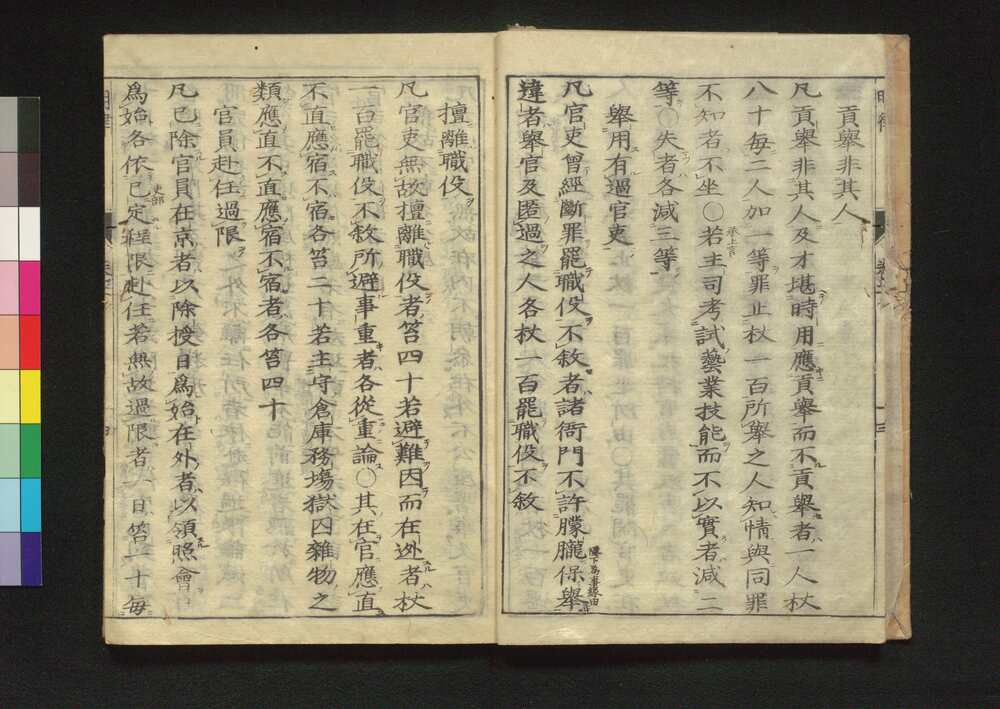 貢舉非其人
凡貢舉非其人及才堪時用應貢舉而不貢舉者一人杖
八十每二人加一等罪止杖一百所舉之人知情與同罪
不知者不坐〇若主司考試藝業技能而不以實者減二
等〇失者各減三等
舉用有過官吏
凡官吏曾經斷罪罷職伇不敘者諸衙門不許朦朧保舉
違者舉官及匿過之人各杖一百罷職伇不敘
擅離職伇
凡官吏無故擅離職伇者笞四十若避難因而在逃者杖
一百罷職伇不敘所避事重者各從重論〇其在官應直
不直應宿不宿各笞二十若主守倉庫務塲獄囚雜物之
類應直不直應宿不宿者各笞四十
官員赴任過限
凡已除官員在京者以除授日爲始在外者以領照會日
爲始各依已定程限赴任若無故過限者一日笞一十每